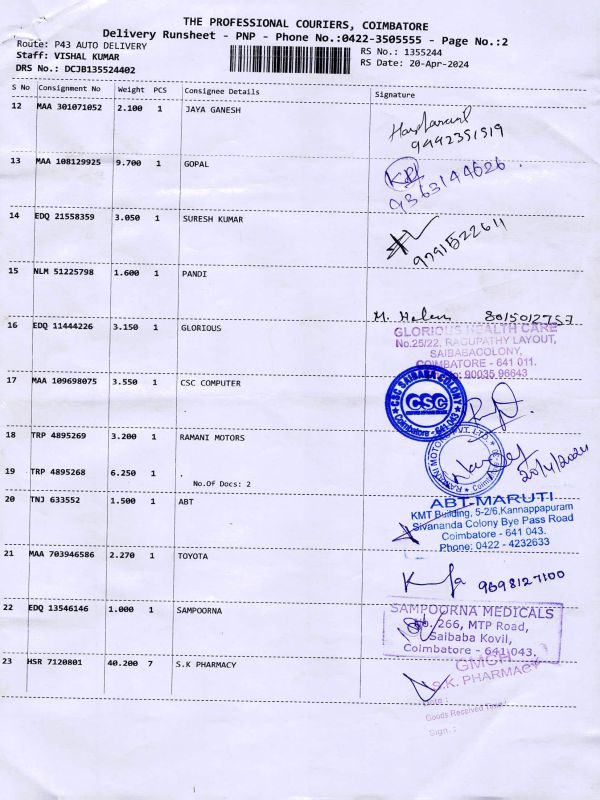 THE PROFESSIONAL COURIERS, COIMBATORE
Delivery Runsheet - PNP - Phone No.:0422-3505555 - Page No.:2
Route: P43 AUTO DELIVERY
RS No.: 1355244
Staff: VISHAL KUMAR
RS Date: 20-Apr-2024
DRS No.: DCJB135524402
S No Consignment No Weight PCS Consignee Details Signature
12 MAA 301071052 2.100 1 JAYA GANESH
9442351519
13 MAA 108129925 9.700 1 GOPAL
9363144626
14 EDQ 21558359 3.050 1 SURESH KUMAR
9791522611
15 NLM 51225798 1.600 1 PANDI
M. Helen 8015012757
16 EDQ 11444226 3.150 1 GLORIOUS
GLORIOUS HEALTH CARE
No.25/22, RAGUPATHY LAYOUT,
SAIBABACOLONY,
COIMBATORE - 641 011.
90035 96643
17 MAA 109698075 3.550 1 CSC COMPUTER
CSC SAIBABA COLONY
CSC
Coimbatore - 641 043
18 TRP 4895269 3.200 1 RAMANI MOTORS
RAMANI MOTORS PVT. LTD.
20/4/2024
19 TRP 4895268 6.250 1
No.Of Docs: 2
20 TNJ 633552 1.500 1 ABT
ABT-MARUTI
KMT Building, 5-2/6,Kannappapuram
Sivananda Colony Bye Pass Road
Coimbatore - 641 043.
Phone: 0422 - 4232633
21 MAA 703946586 2.270 1 TOYOTA
9698127100
22 EDQ 13546146 1.000 1 SAMPOORNA
SAMPOORNA MEDICALS
No. 266, MTP Road,
Saibaba Kovil,
Coimbatore - 641 043.
23 HSR 7120801 40.200 7 S.K PHARMACY
GMCH
S.K. PHARMACY
Goods Received
Sign. :